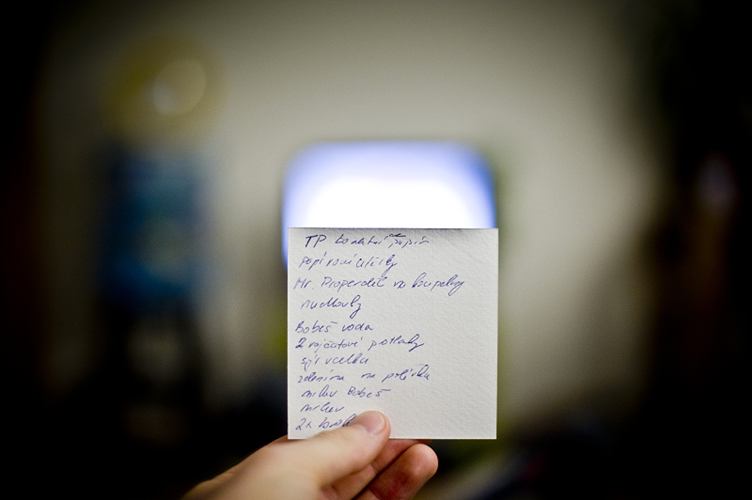 TP toaletní papír
papírové utěrky
Mr. Proper na koupelny
nudle
Bobeš voda
2 rajčatové protlaky
sýr vcelku
zelenina na polévku
mrkev Bobeš
mrkev
2x